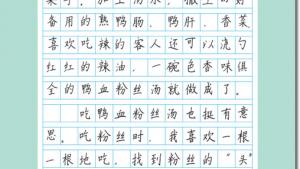 菜子，加上汤水，撒上时
备用的熟鸭肠、鸭肝、香菜
喜欢吃辣的客人还可以浇勺
红红的辣油，一碗色香味俱
全的鸭血粉丝汤就做成了。
吃鸭血粉丝汤也挺有意
思。吃粉丝时，我喜欢一根
一根地吃，找到粉丝的“头